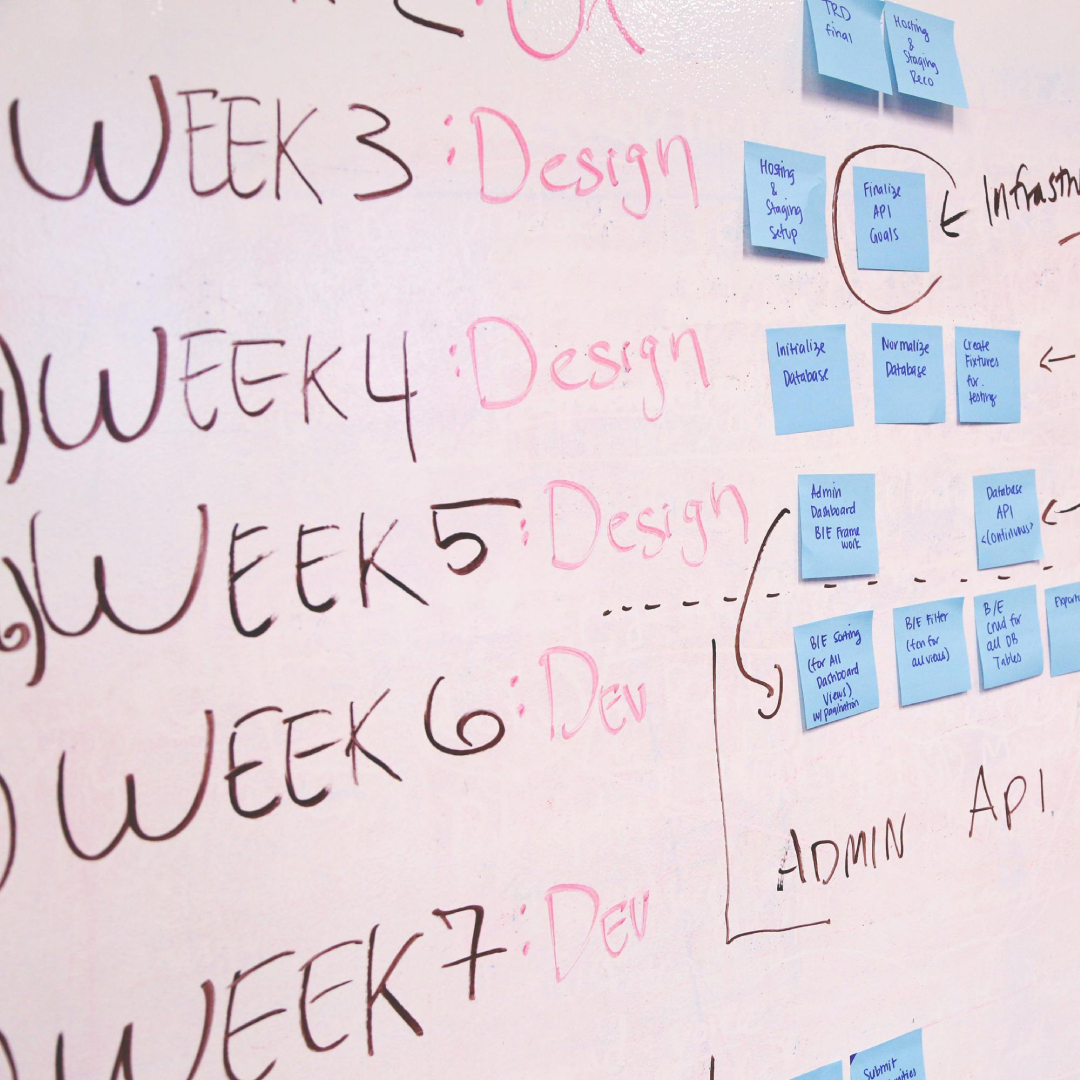 TRD
final
Hosting
&
Staging
Reco
WEEK 3 : Design
Hosting
&
Staging
Setup
Finalize
API
Goals
WEEK 4 : Design
Initialize
Database
Normalize
Database
Create
Fixtures
for
testing
WEEK 5 : Design
Admin
Dashboard
B/E Frame
work
Database
API
<(continuous)
WEEK 6 : Dev
B/E Sorting
(for All
Dashboard
Views)
w/ pagination
B/E Filter
(for
all views)
B/E
Crud for
all DB
Tables
ADMIN API
WEEK 7 : Dev
Submit